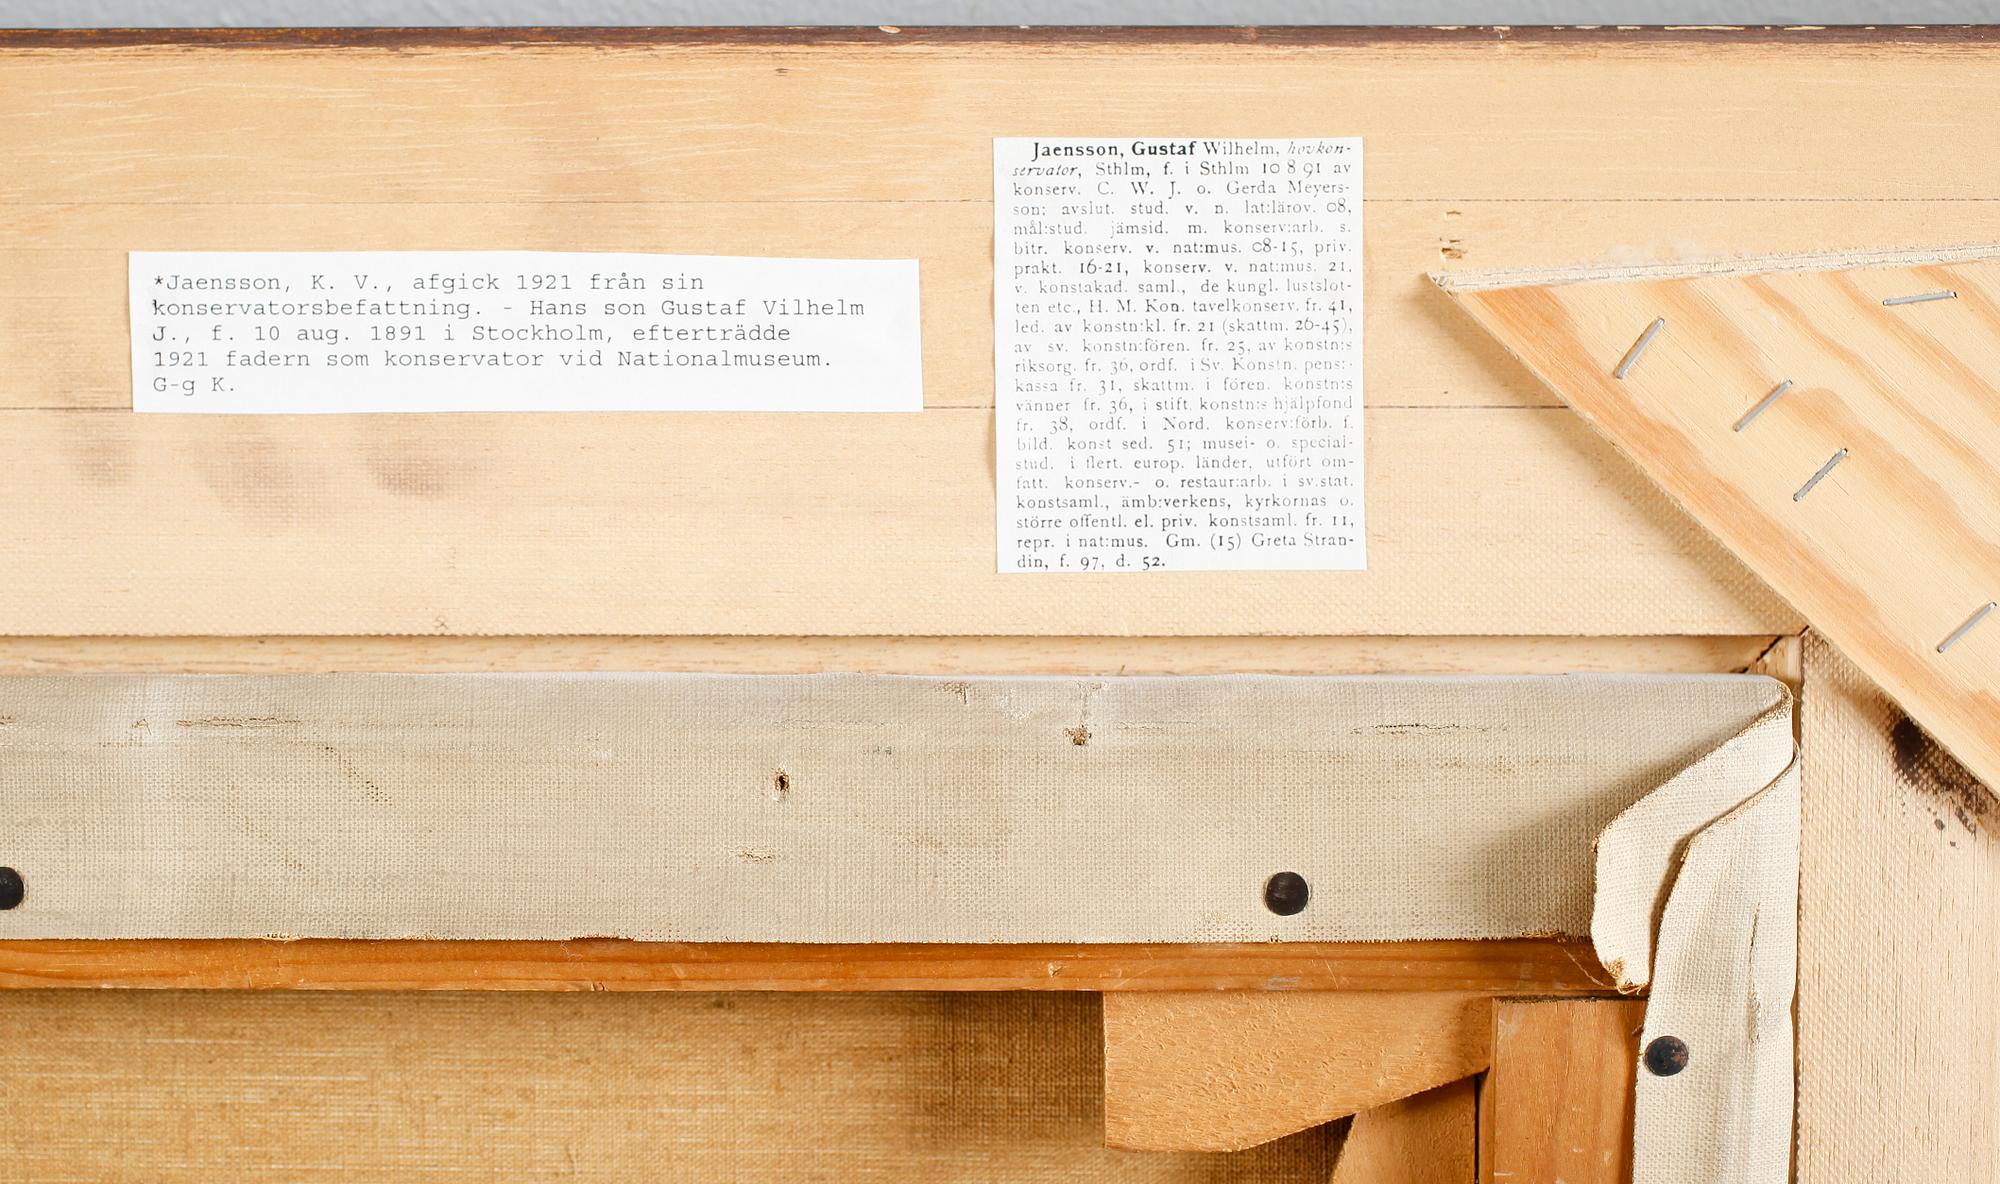 *Jaensson, K. V., afgick 1921 från sin
konservatorsbefattning. - Hans son Gustaf Vilhelm
J., f. 10 aug. 1891 i Stockholm, efterträdde
1921 fadern som konservator vid Nationalmuseum.
G-g K.
Jaensson, Gustaf Wilhelm, hovkon-
servator, Sthlm, f. i Sthlm 10 8 91 av
konserv. C. W. J. o. Gerda Meyers-
son; avslut. stud. v. n. lat:lärov. 08,
mål:stud. jämsid. m. konserv:arb. s.
bitr. konserv. v. nat:mus. 08-15, priv.
prakt. 16-21, konserv. v. nat:mus. 21,
v. konstakad. saml., de kungl. lustslot-
ten etc., H. M. Kon. tavelkonserv. fr. 41,
led. av konstn:kl. fr. 21 (skattm. 26-45),
av sv. konstn:fören. fr. 25, av konstn:s
riksorg. fr. 36, ordf. i Sv. Konstn. pens:-
kassa fr. 31, skattm. i fören. konstn:s
vänner fr. 36, i stift. konstn:s hjälpfond
fr. 38, ordf. i Nord. konserv:förb. f.
bild. konst sed. 51; musei- o. special-
stud. i flert. europ. länder, utfört om-
fatt. konserv.- o. restaur:arb. i sv.stat.
konstsaml., ämb:verkens, kyrkornas o.
större offentl. el. priv. konstsaml. fr. 11,
repr. i nat:mus. Gm. (15) Greta Stran-
din, f. 97, d. 52.